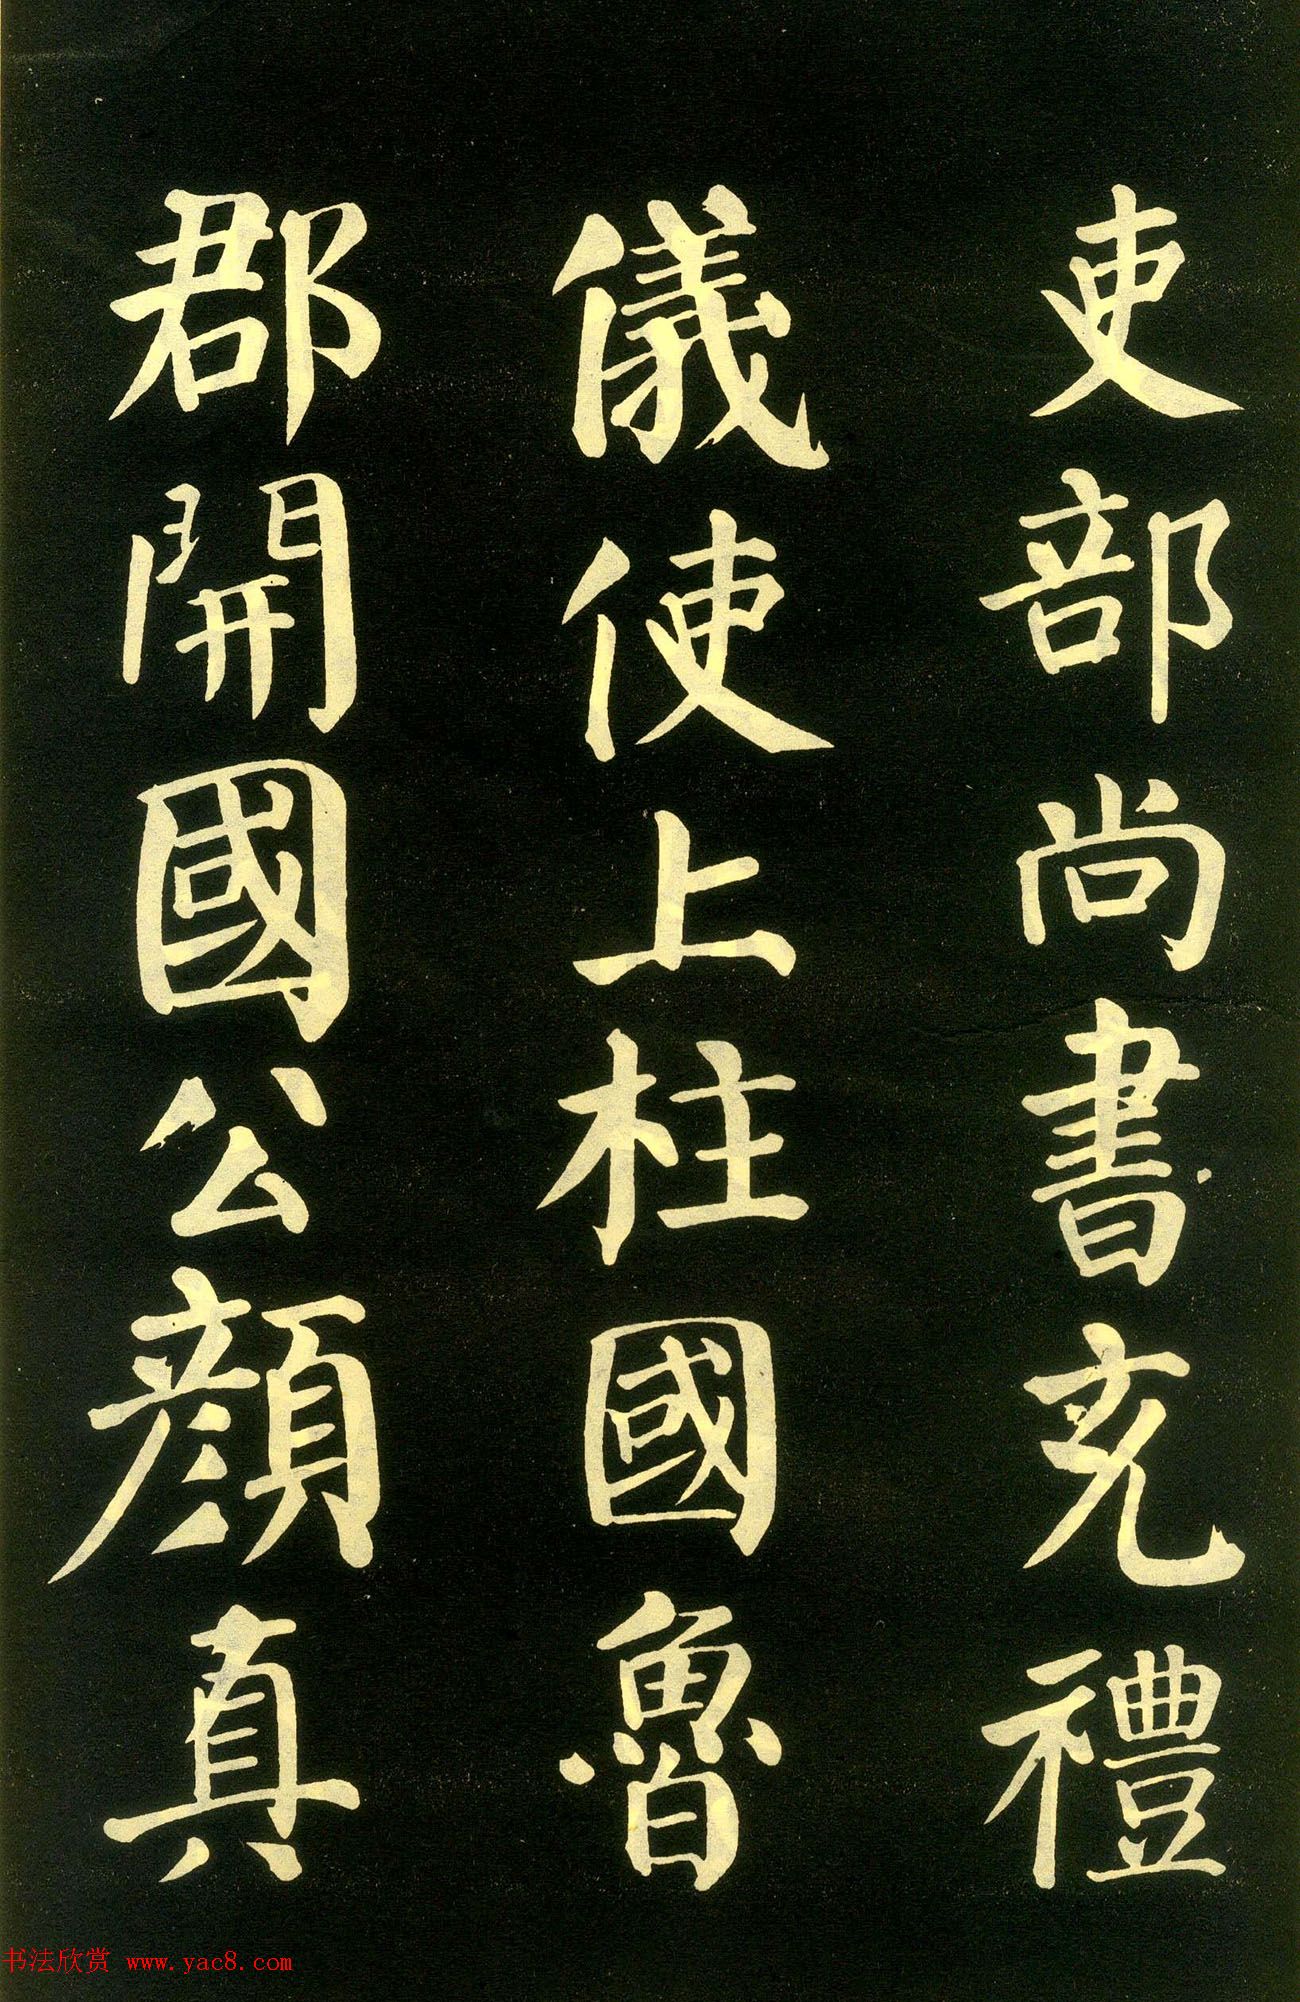 吏部尚書充禮
儀使上柱國魯
郡開國公顏真
书法欣赏 www.yac8.com